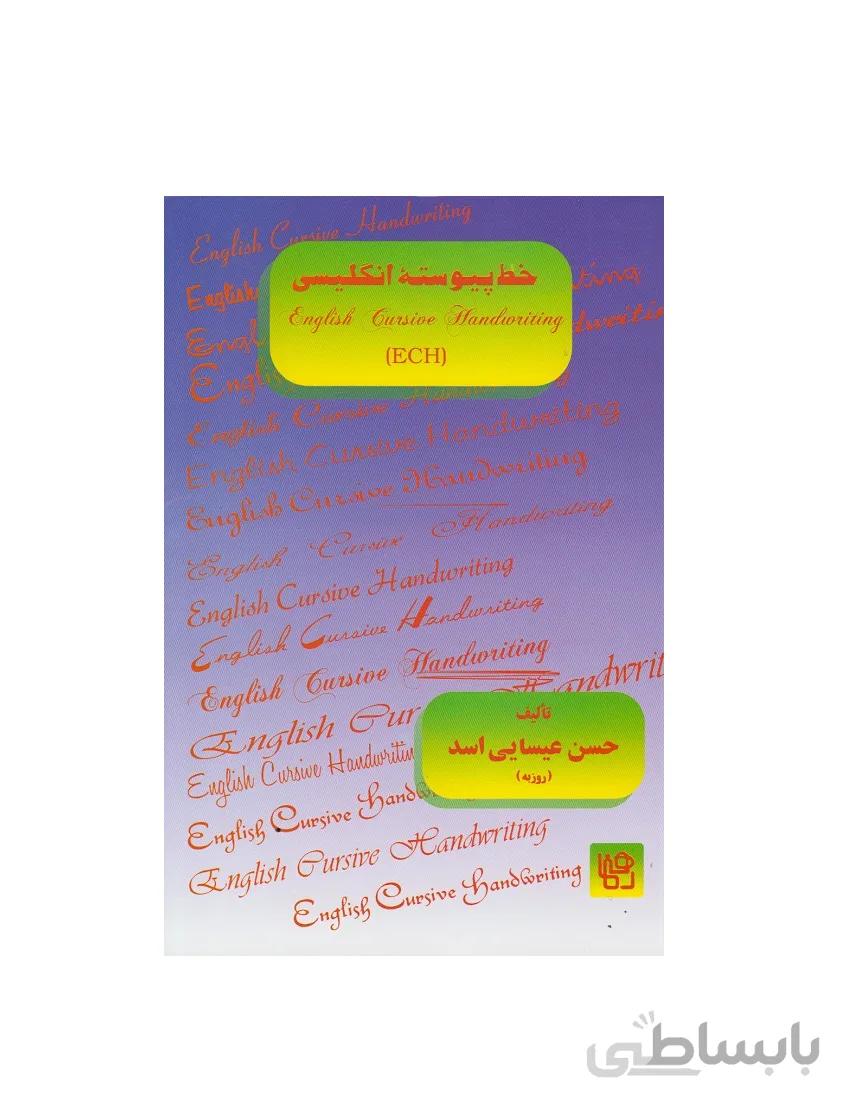 English Cursive Handwriting
خط پیوستهٔ انگلیسی
English Cursive Handwriting
(ECH)
English
Engl
dwriting
English Cursive Handwriting
English Cursive Handwriting
English Cursive Handwriting
English Cursive Handwriting
English Cursive Handwriting
English Cursive Handwriting
English Cursive Handwriting
English Cur Handwrit
تألیف
حسن عیسایی اسد
(روزبه)
English Cursive Handwriting
English Cursive Handw
English Cursive Handwriting
English Cursive Handwriting
رهنما
باساطی